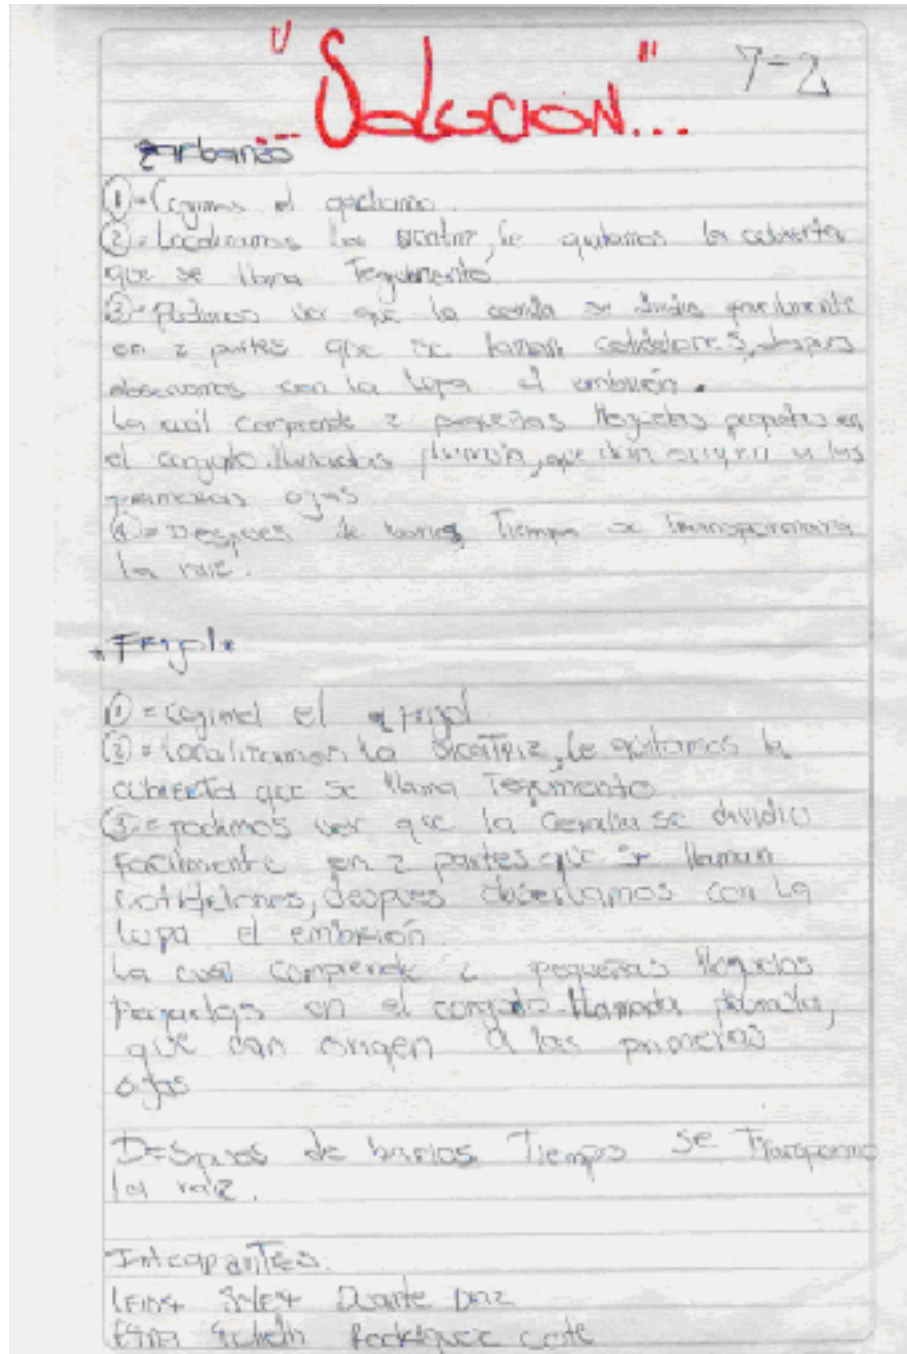 "Solución..." 7-2
garbanzo
①=Cogimos el garbanzo.
②=Localizamos la sicatriz, le quitamos la cubierta
que se llama Tegumento
③=Podemos ver que la semilla se dividio facilmente
en 2 partes que se llaman cotiledones, despues
observamos con la lupa el embrión.
La cuál comprende 2 pequeñas pegadas en
el conjunto llamadas plumula, que dan origen a las
primeras ojas
④=Despues de varios Tiempo se
la raiz.
Frijol
①=Cogimos el frijol
②=Localizamos la sicatriz, le quitamos la
cubierta que se llama Tegumento
③=podemos ver que la semilla se dividio
facilmente en 2 partes que se llaman
cotiledones, despues observamos con la
lupa el embrión
La cual comprende 2 pequeñas
en el llamada plumula,
que dan origen a las primeras
ojas
Despues de barios Tiempo se
la raiz.
Duarte Diaz
Rodriguez